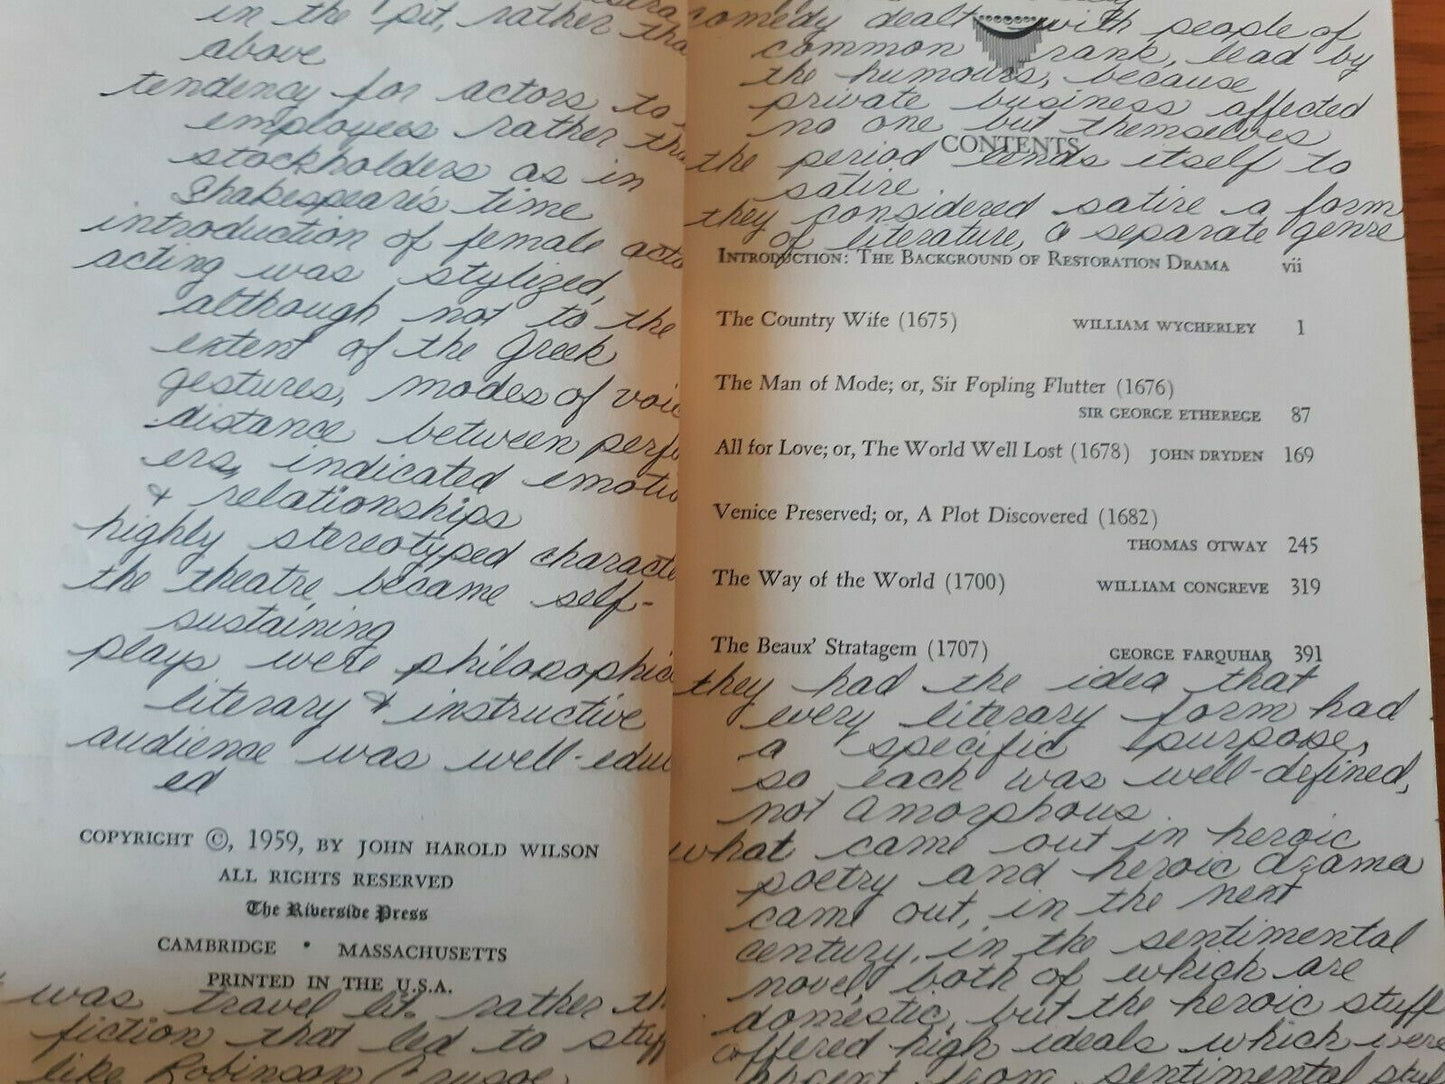 in the pit, rather tha
above
tendency for actors to
employees rather tha
stockholders as in
Shakespeare's time
introduction of female acto
acting was stylized,
although not to the
extent of the Greek
gestures, modes of voic
distance between perf
ers, indicated emotio
& relationships
highly stereotyped characte
the theatre became self-
sustaining
plays were philosophic
literary & instructive
audience was well-educ
ed
COPYRIGHT ©, 1959, BY JOHN HAROLD WILSON
ALL RIGHTS RESERVED
The Riverside Press
CAMBRIDGE • MASSACHUSETTS
PRINTED IN THE U.S.A.
was travel lit. rather th
fiction that led to stuff
like Robinson Crusoe
comedy dealt with people of
common rank, lead by
the humours, because
private business affected
no one but themselves
CONTENTS
the period lends itself to
satire
they considered satire a form
of literature, a separate genre
INTRODUCTION: THE BACKGROUND OF RESTORATION DRAMA vii
The Country Wife (1675) WILLIAM WYCHERLEY 1
The Man of Mode; or, Sir Fopling Flutter (1676)
SIR GEORGE ETHEREGE 87
All for Love; or, The World Well Lost (1678) JOHN DRYDEN 169
Venice Preserved; or, A Plot Discovered (1682)
THOMAS OTWAY 245
The Way of the World (1700) WILLIAM CONGREVE 319
The Beaux' Stratagem (1707) GEORGE FARQUHAR 391
they had the idea that
every literary form had
a specific purpose,
so each was well-defined,
not amorphous
what came out in heroic
poetry and heroic drama
came out, in the next
century, in the sentimental
novel, both of which are
domestic, but the heroic stuff
offered high ideals which were
from sentimental